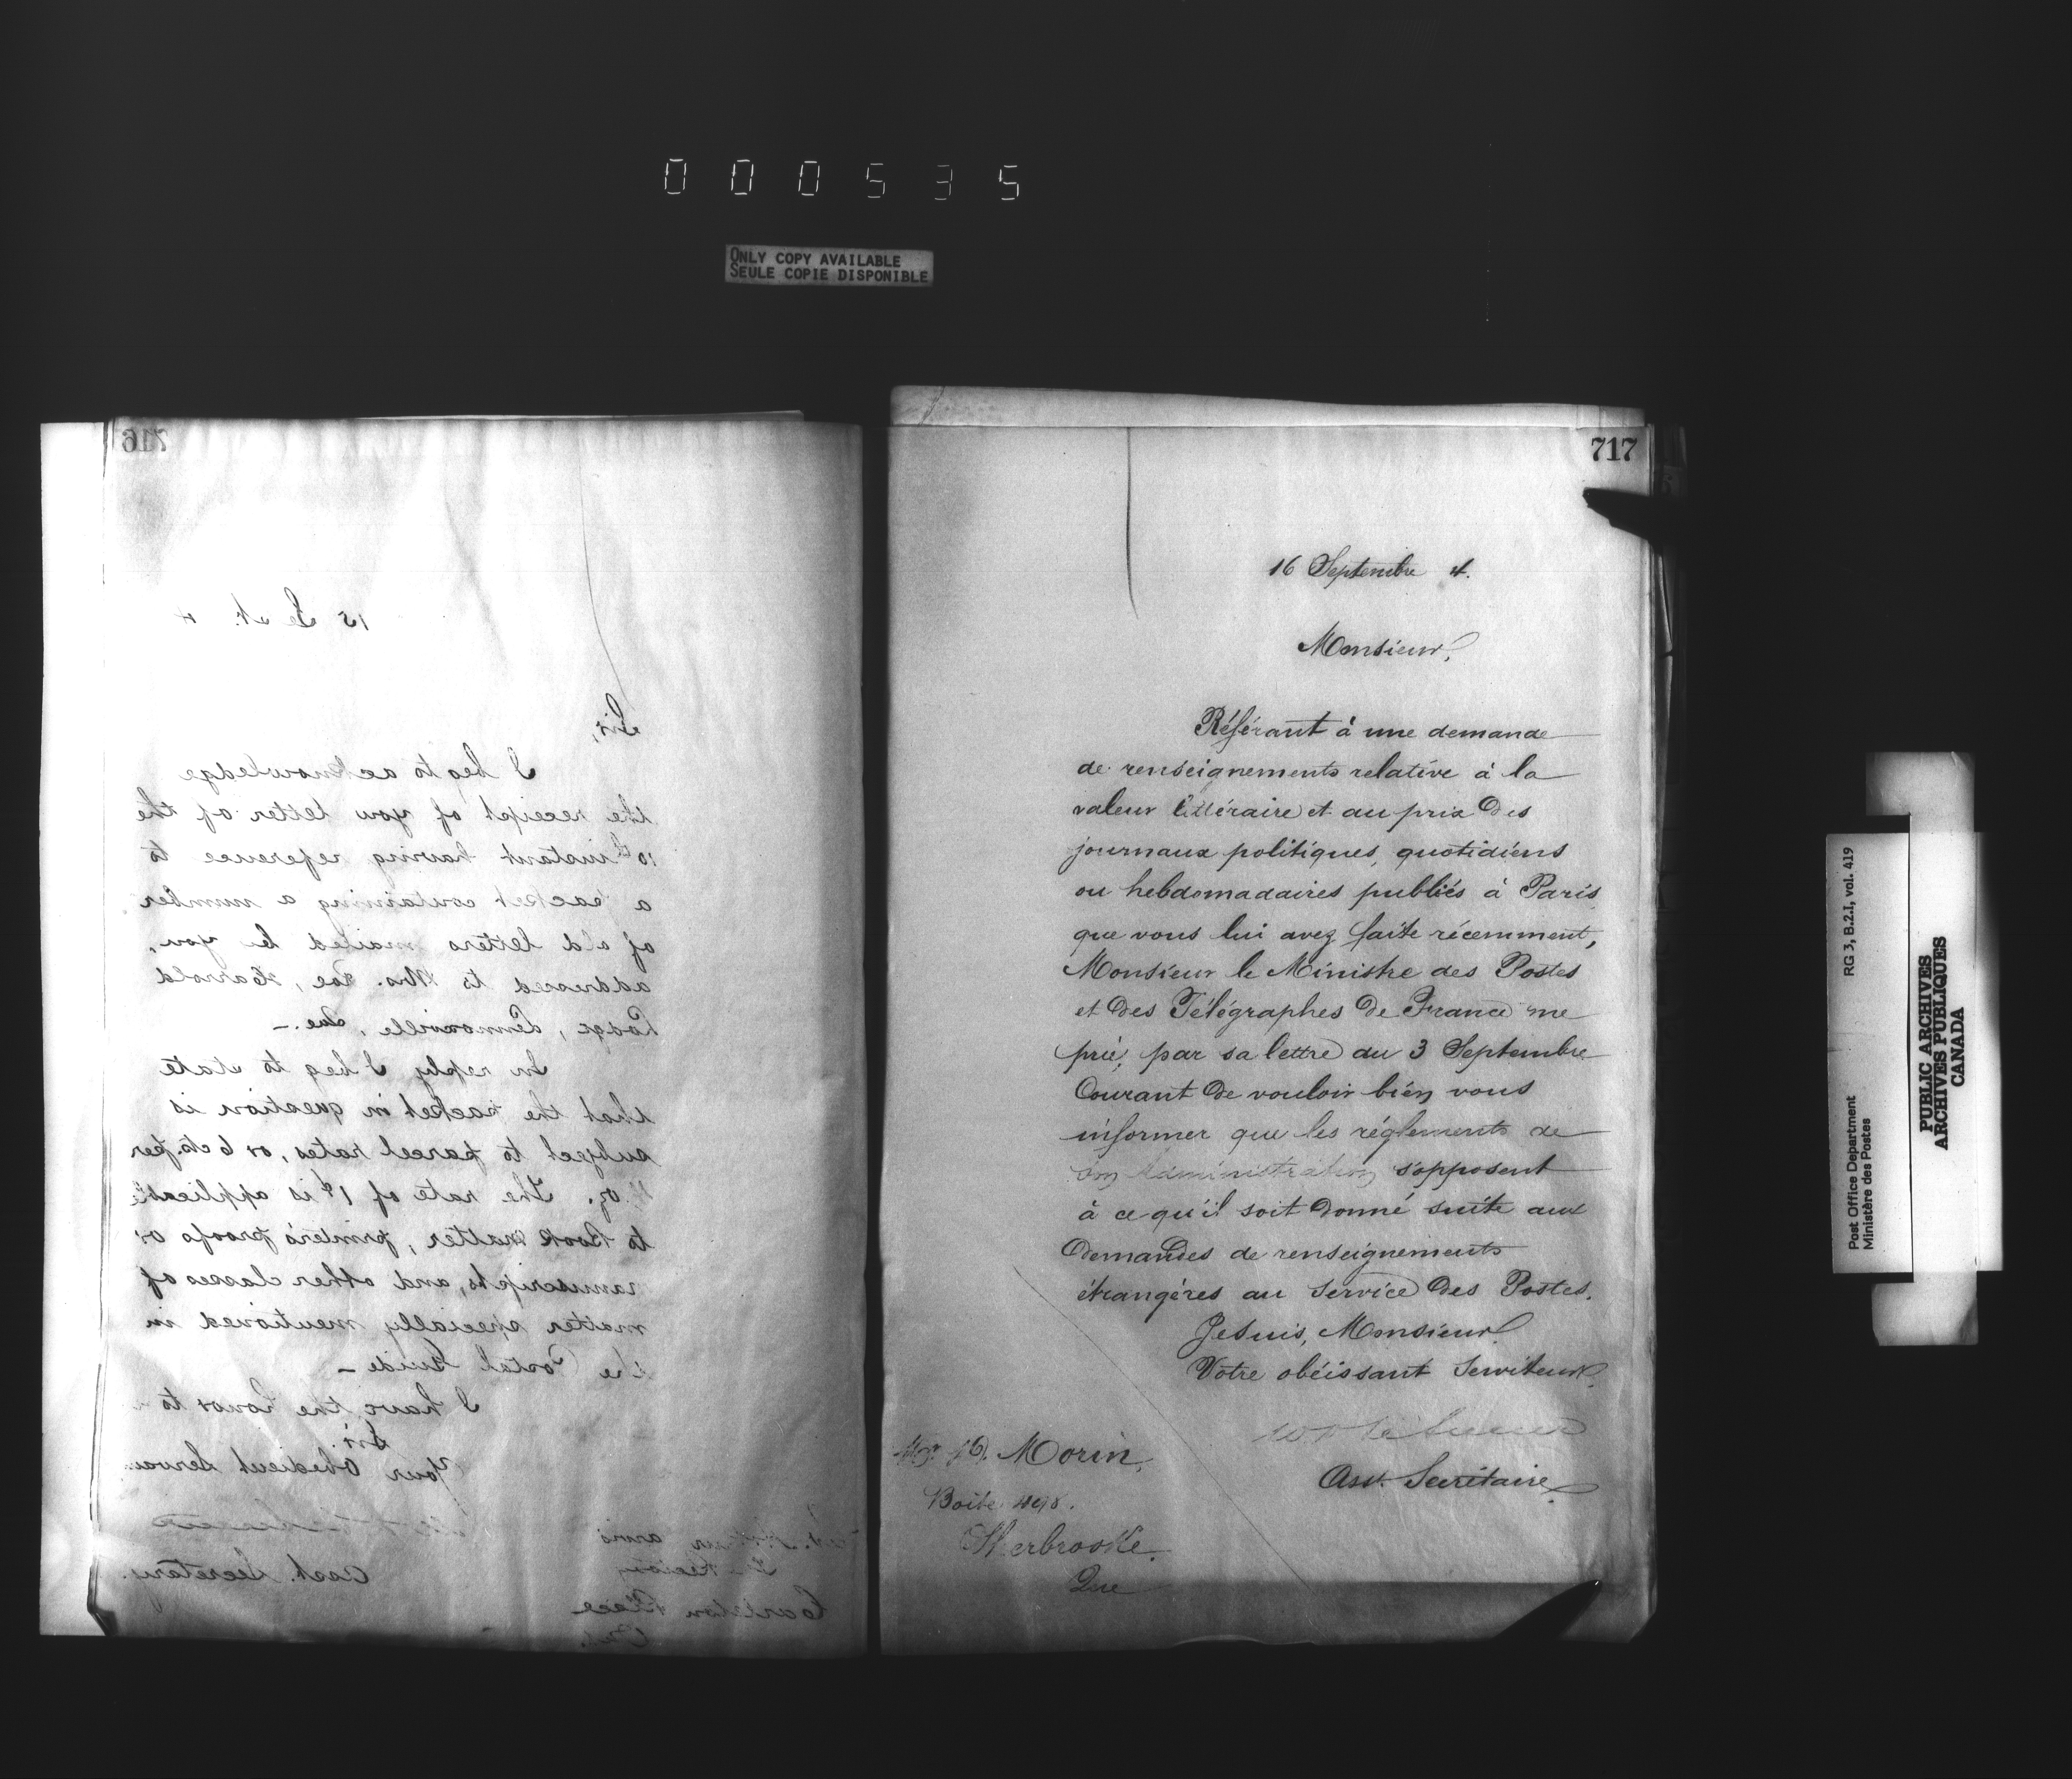 000535
ONLY COPY AVAILABLE
SEULE COPIE DISPONIBLE
716
15 Sept. 4
Sir,
I beg to acknowledge
the receipt of your letter of the
10th instant having reference to
a packet containing a number
of old letters mailed by you,
addressed to Mrs. Roe, Harrold
Lodge, Lennoxville, Que. –
In reply I beg to state
that the packet in question is
subject to parcel rates, or 6 cts. per
oz. The rate of 1¢ is applicable
to Book matter, printer's proofs or
manuscripts, and other classes of
matter specially mentioned in
the Postal Guide –
I have the honor to
Sir,
Your Obedient Servan
Asst. Secretary.
Carleton Place
Ont.
717
16 Septembre 4.
Monsieur,
Référant à une demande
de renseignements relative à la
valeur littéraire et au prix des
journaux politiques, quotidiens
ou hebdomadaires publiés à Paris
que vous lui avez faite récemment,
Monsieur le Ministre des Postes
et des Télégraphes de France me
prie, par sa lettre du 3 Septembre
Courant de vouloir bien vous
informer que les réglements de
son Administration s'opposent
à ce qu'il soit donné suite aux
demandes de renseignements
étrangères au service des Postes.
Je suis, Monsieur,
Votre obéissant Serviteur,
Asst. Secrétaire
Morin,
Boite 498.
Sherbrooke.
Que
Post Office Department RG 3, B.2.I, vol. 419
Ministère des Postes
PUBLIC ARCHIVES
ARCHIVES PUBLIQUES
CANADA